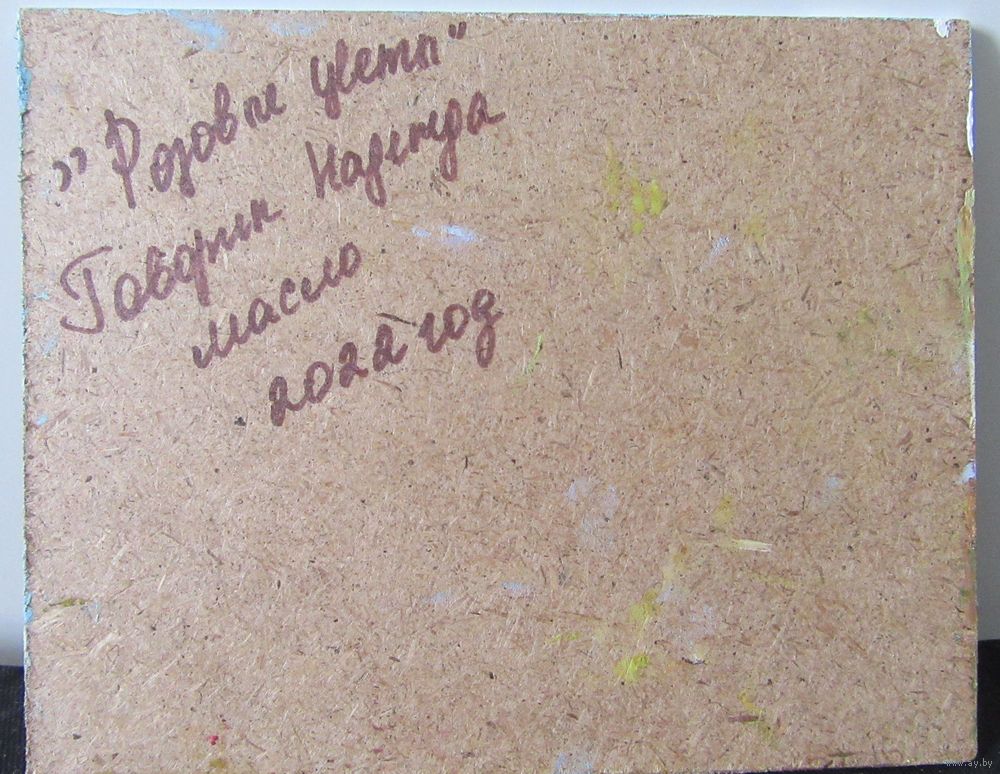 "Розовые цветы"
Говорик Надежда
масло
2022 год
www.ay.by